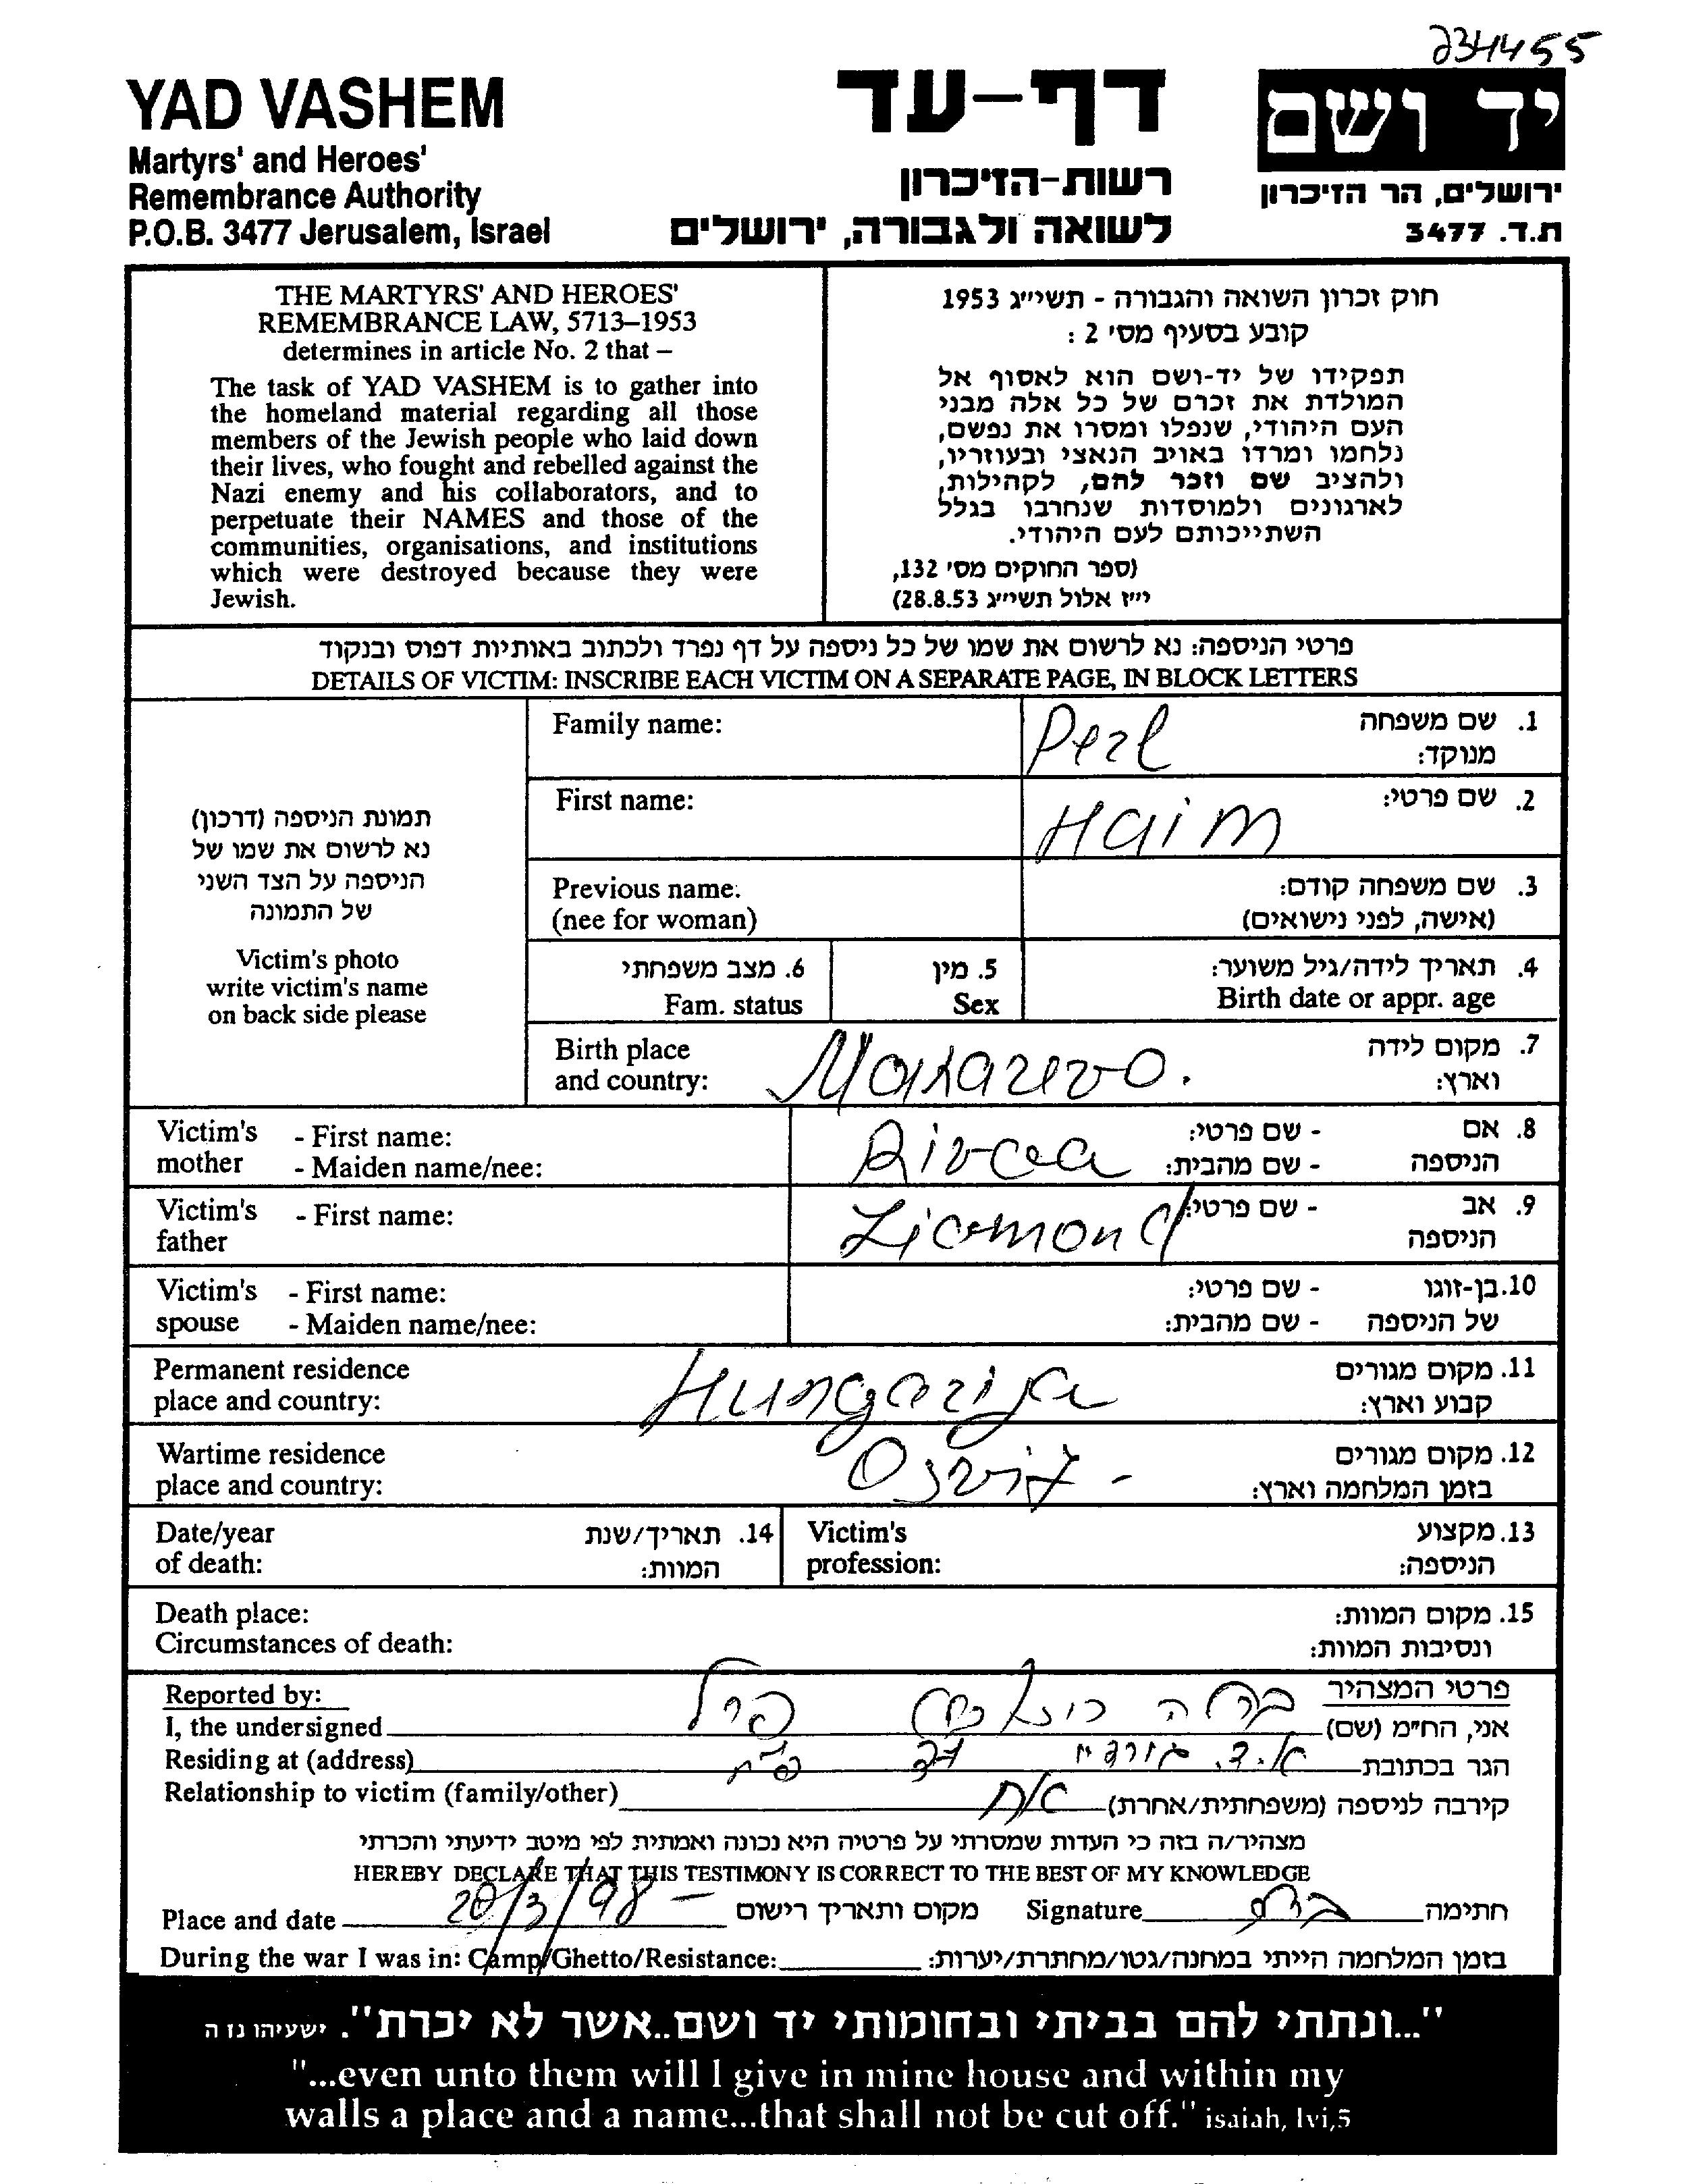 234455
YAD VASHEM
Martyrs' and Heroes'
Remembrance Authority
P.O.B. 3477 Jerusalem, Israel
דף-עד
רשות-הזיכרון
לשואה ולגבורה, ירושלים
יד ושם
ירושלים, הר הזיכרון
ת.ד. 3477
THE MARTYRS' AND HEROES'
REMEMBRANCE LAW, 5713–1953
determines in article No. 2 that –
The task of YAD VASHEM is to gather into
the homeland material regarding all those
members of the Jewish people who laid down
their lives, who fought and rebelled against the
Nazi enemy and his collaborators, and to
perpetuate their NAMES and those of the
communities, organisations, and institutions
which were destroyed because they were
Jewish.
חוק זכרון השואה והגבורה - תשי״ג 1953
קובע בסעיף מס׳ 2 :
תפקידו של יד-ושם הוא לאסוף אל
המולדת את זכרם של כל אלה מבני
העם היהודי, שנפלו ומסרו את נפשם,
נלחמו ומרדו באויב הנאצי ובעוזריו,
ולהציב שם וזכר להם, לקהילות,
לארגונים ולמוסדות שנחרבו בגלל
השתייכותם לעם היהודי.
(ספר החוקים מס׳ 132,
י״ז אלול תשי״ג 28.8.53)
פרטי הניספה: נא לרשום את שמו של כל ניספה על דף נפרד ולכתוב באותיות דפוס ובנקוד
DETAILS OF VICTIM: INSCRIBE EACH VICTIM ON A SEPARATE PAGE, IN BLOCK LETTERS
תמונת הניספה (דרכון)
נא לרשום את שמו של
הניספה על הצד השני
של התמונה
Victim's photo
write victim's name
on back side please
Family name: Perl 1. שם משפחה
מנוקד:
First name: Haim 2. שם פרטי:
Previous name: 3. שם משפחה קודם:
(nee for woman) (אישה, לפני נישואים)
6. מצב משפחתי 5. מין 4. תאריך לידה/גיל משוער:
Fam. status Sex Birth date or appr. age
Birth place Makarevo. 7. מקום לידה
and country: וארץ:
Victim's - First name: Rivca - שם פרטי: 8. אם
mother - Maiden name/nee: - שם מהבית: הניספה
Victim's - First name: - שם פרטי: 9. אב
father הניספה
Victim's - First name: - שם פרטי: 10. בן-זוגו
spouse - Maiden name/nee: - שם מהבית: של הניספה
Permanent residence Hungarija 11. מקום מגורים
place and country: קבוע וארץ:
Wartime residence 12. מקום מגורים
place and country: בזמן המלחמה וארץ:
Date/year 14. תאריך/שנת Victim's 13. מקצוע
of death: המוות: profession: הניספה:
Death place: 15. מקום המוות:
Circumstances of death: ונסיבות המוות:
Reported by: פרטי המצהיר
I, the undersigned פרל אני, הח״מ (שם)
Residing at (address) הגר בכתובת
Relationship to victim (family/other) אח קירבה לניספה (משפחתית/אחרת)
מצהיר/ה בזה כי העדות שמסרתי על פרטיה היא נכונה ואמתית לפי מיטב ידיעתי והכרתי
HEREBY DECLARE THAT THIS TESTIMONY IS CORRECT TO THE BEST OF MY KNOWLEDGE
Place and date 20/3/98 - מקום ותאריך רישום Signature חתימה
During the war I was in: Camp/Ghetto/Resistance: בזמן המלחמה הייתי במחנה/גטו/מחתרת/יערות:
"...ונתתי להם בביתי ובחומותי יד ושם..אשר לא יכרת". ישעיהו נו ה
"...even unto them will I give in mine house and within my
walls a place and a name...that shall not be cut off." isaiah, lvi,5